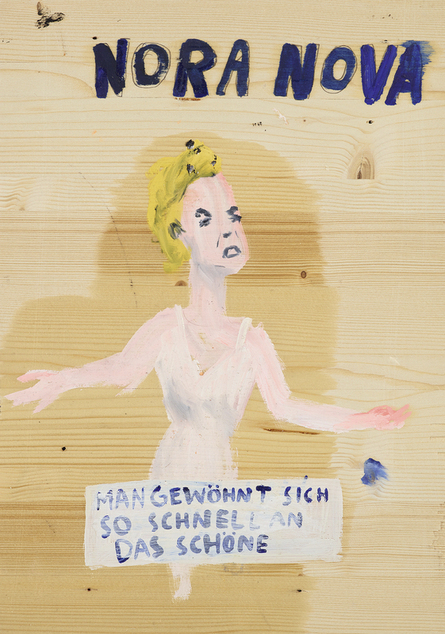 NORA NOVA
MAN GEWÖHNT SICH
SO SCHNELL AN
DAS SCHÖNE